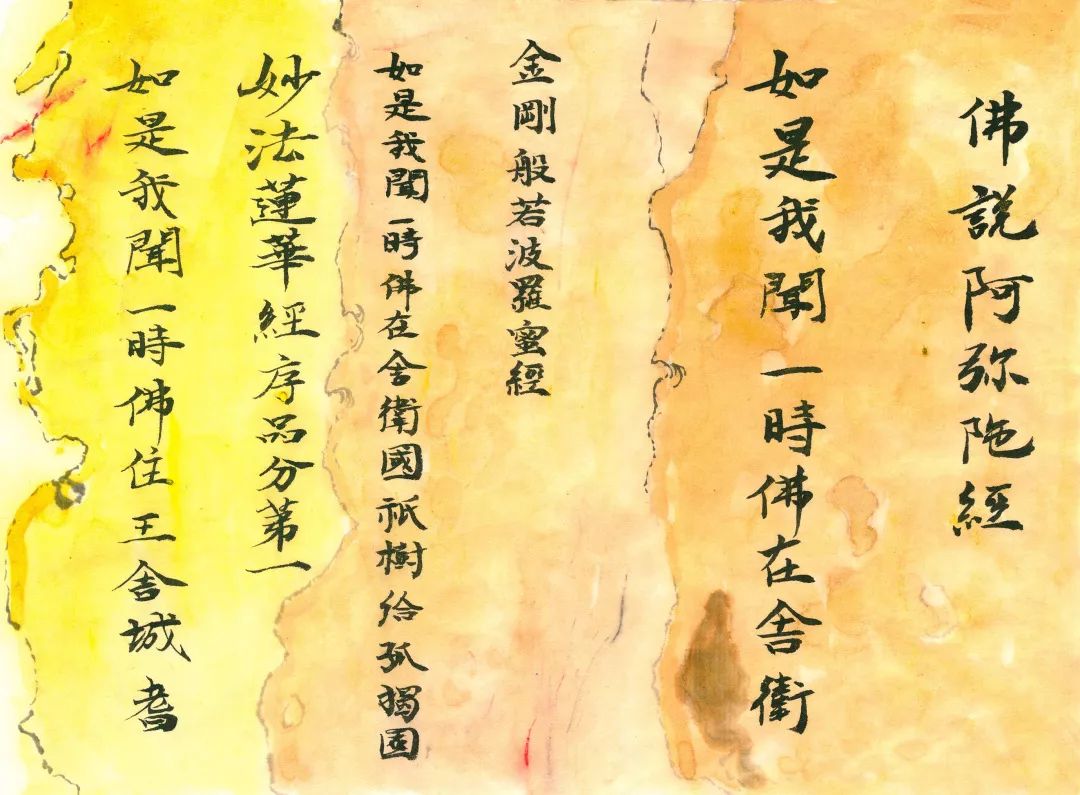 佛說阿弥陁經
如是我聞一時佛在舍衛
金剛般若波羅蜜經
如是我聞一時佛在舍衛國祇樹給孤獨園
妙法蓮華經序品分第一
如是我聞一時佛住王舍城耆